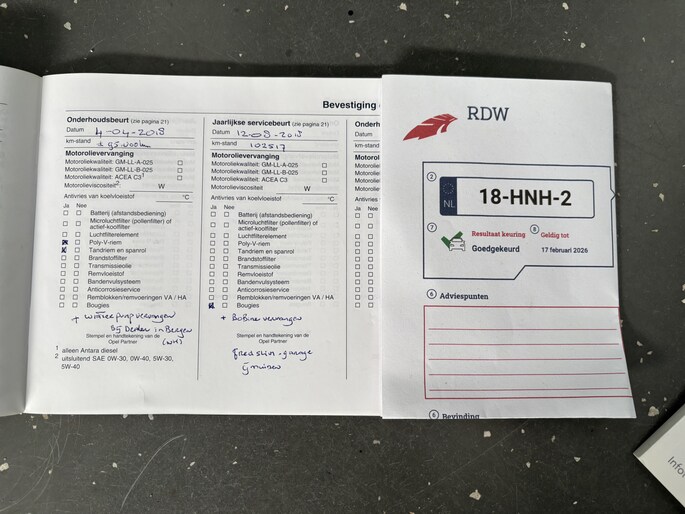 Bevestiging
Onderhoudsbeurt (zie pagina 21)
Datum 4-04-2018
km-stand ± 95.000km
Motorolievervanging
Motoroliekwaliteit: GM-LL-A-025
Motoroliekwaliteit: GM-LL-B-025
Motoroliekwaliteit: ACEA C3¹
Motorolieviscositeit²: W
Antivries van koelvloeistof °C
Ja Nee
Batterij (afstandsbediening)
Microluchtfilter (pollenfilter) of
actief-koolfilter
Luchtfilterelement
Poly-V-riem
Tandriem en spanrol
Brandstoffilter
Transmissieolie
Remvloeistof
Bandenvulsysteem
Anticorrosieservice
Remblokken/remvoeringen VA / HA
Bougies
+ waterpomp vervangen
Bij Derder in Bergen
(NH)
Stempel en handtekening van de
Opel Partner
1 alleen Antara diesel
2 uitsluitend SAE 0W-30, 0W-40, 5W-30,
5W-40
Jaarlijkse servicebeurt (zie pagina 21)
Datum 12-09-2018
km-stand 102517
Motorolievervanging
Motoroliekwaliteit: GM-LL-A-025
Motoroliekwaliteit: GM-LL-B-025
Motoroliekwaliteit: ACEA C3
Motorolieviscositeit W
Antivries van koelvloeistof °C
Ja Nee
Batterij (afstandsbediening)
Microluchtfilter (pollenfilter) of
actief-koolfilter
Luchtfilterelement
Poly-V-riem
Tandriem en spanrol
Brandstoffilter
Transmissieolie
Remvloeistof
Bandenvulsysteem
Anticorrosieservice
Remblokken/remvoeringen VA / HA
Bougies
+ Bobine vervangen
Stempel en handtekening van de
Opel Partner
garage
IJmuiden
Onderh
Datum
km-stand
Motorolie
Motoroliek
Motoroliek
Motoroliek
Motorolievi
Antivries va
Ja Nee
RDW
2
NL
18-HNH-2
7 Resultaat keuring
Goedgekeurd
8 Geldig tot
17 februari 2026
6 Adviespunten
6 Bevinding
Infor